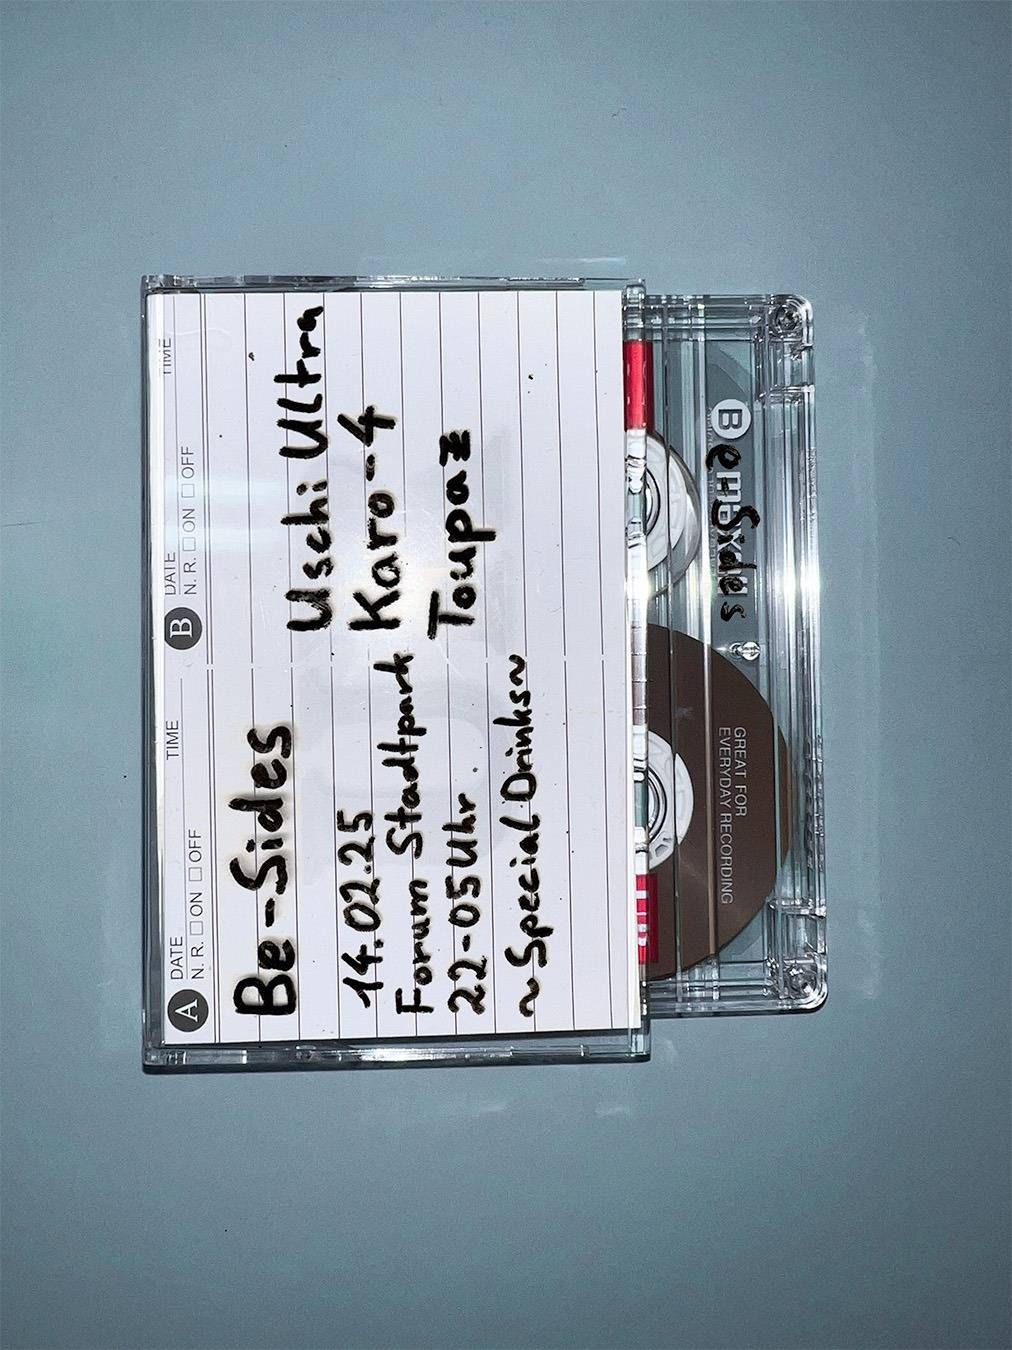 A DATE TIME
N. R. □ ON □ OFF
B DATE TIME
N. R. □ ON □ OFF
Be-Sides
14.02.25
Forum Stadtpark
22-05 Uhr.
~Special Drinks~
Uschi Ultra
Karo-4
Toupaz
Be-Sides
GREAT FOR
EVERYDAY RECORDING